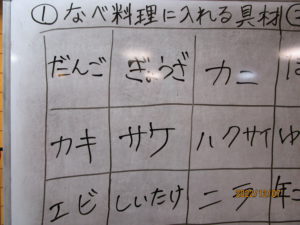 ①なべ料理に入れる具材
だんご ぎょうざ カニ
カキ サケ ハクサイ
エビ しいたけ ニラ